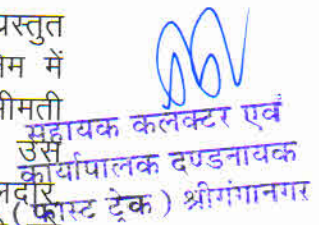 प्रस्तुत
में
श्रीमती
सहायक कलक्टर एवं
उस
कार्यपालक दण्डनायक
(फास्ट ट्रेक) श्रीगंगानगर